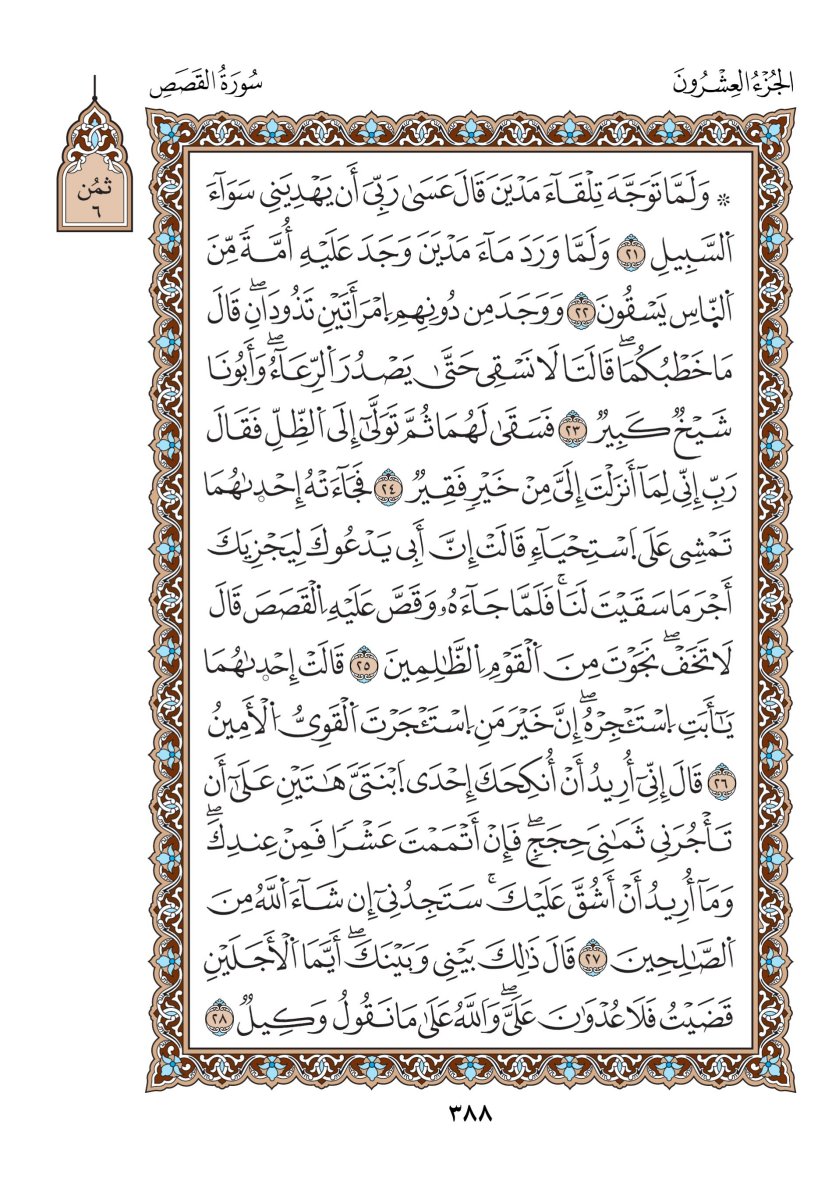 الجُزْءُ العِشْرُونَ
سُورَةُ القَصَصِ
ثمُن
٦
۞ وَلَمَّا تَوَجَّهَ تِلْقَآءَ مَدْيَنَ قَالَ عَسَىٰ رَبِّىَ أَن يَهْدِيَنِى سَوَآءَ
اَ۬لسَّبِيلِ ٢١ وَلَمَّا وَرَدَ مَآءَ مَدْيَنَ وَجَدَ عَلَيْهِ أُمَّةً مِّنَ
اَ۬لنَّاسِ يَسْقُونَ ٢٢ وَوَجَدَ مِن دُونِهِمِ اِ۪مْرَأَتَيْنِ تَذُودَانِۖ قَالَ
مَا خَطْبُكُمَاۖ قَالَتَا لَا نَسْقِى حَتَّىٰ يَصْدُرَ اَ۬لرِّعَآءُۖ وَأَبُونَا
شَيْخٌ كَبِيرٌ ٢٣ فَسَقَىٰ لَهُمَا ثُمَّ تَوَلَّىٰٓ إِلَى اَ۬لظِّلِّ فَقَالَ
رَبِّ إِنِّى لِمَآ أَنزَلْتَ إِلَىَّ مِنْ خَيْرٍ فَقِيرٌ ٢٤ فَجَآءَتْهُ إِحْدٜىٰهُمَا
تَمْشِى عَلَى اَ۪سْتِحْيَآءٍ قَالَتْ إِنَّ أَبِى يَدْعُوكَ لِيَجْزِيَكَ
أَجْرَ مَا سَقَيْتَ لَنَاۚ فَلَمَّا جَآءَهُۥ وَقَصَّ عَلَيْهِ اِ۬لْقَصَصَ قَالَ
لَا تَخَفْۖ نَجَوْتَ مِنَ اَ۬لْقَوْمِ اِ۬لظَّٰلِمِينَ ٢٥ قَالَتْ إِحْدٜىٰهُمَا
يَٰٓأَبَتِ اِ۪سْتَـْٔجِرْهُۖ إِنَّ خَيْرَ مَنِ اِ۪سْتَـْٔجَرْتَ اَ۬لْقَوِىُّ اُ۬لْأَمِينُ
٢٦ قَالَ إِنِّىٓ أُرِيدُ أَنْ أُنكِحَكَ إِحْدَى اَ۪بْنَتَىَّ هَٰتَيْنِ عَلَىٰٓ أَن
تَأْجُرَنِى ثَمَٰنِىَ حِجَجٍۖ فَإِنْ أَتْمَمْتَ عَشْرًا فَمِنْ عِندِكَۖ
وَمَآ أُرِيدُ أَنْ أَشُقَّ عَلَيْكَۚ سَتَجِدُنِىٓ إِن شَآءَ اَ۬للَّهُ مِنَ
اَ۬لصَّٰلِحِينَ ٢٧ قَالَ ذَٰلِكَ بَيْنِى وَبَيْنَكَۖ أَيَّمَا اَ۬لْأَجَلَيْنِ
قَضَيْتُ فَلَا عُدْوَٰنَ عَلَىَّۖ وَاللَّهُ عَلَىٰ مَا نَقُولُ وَكِيلٌ ٢٨
٣٨٨